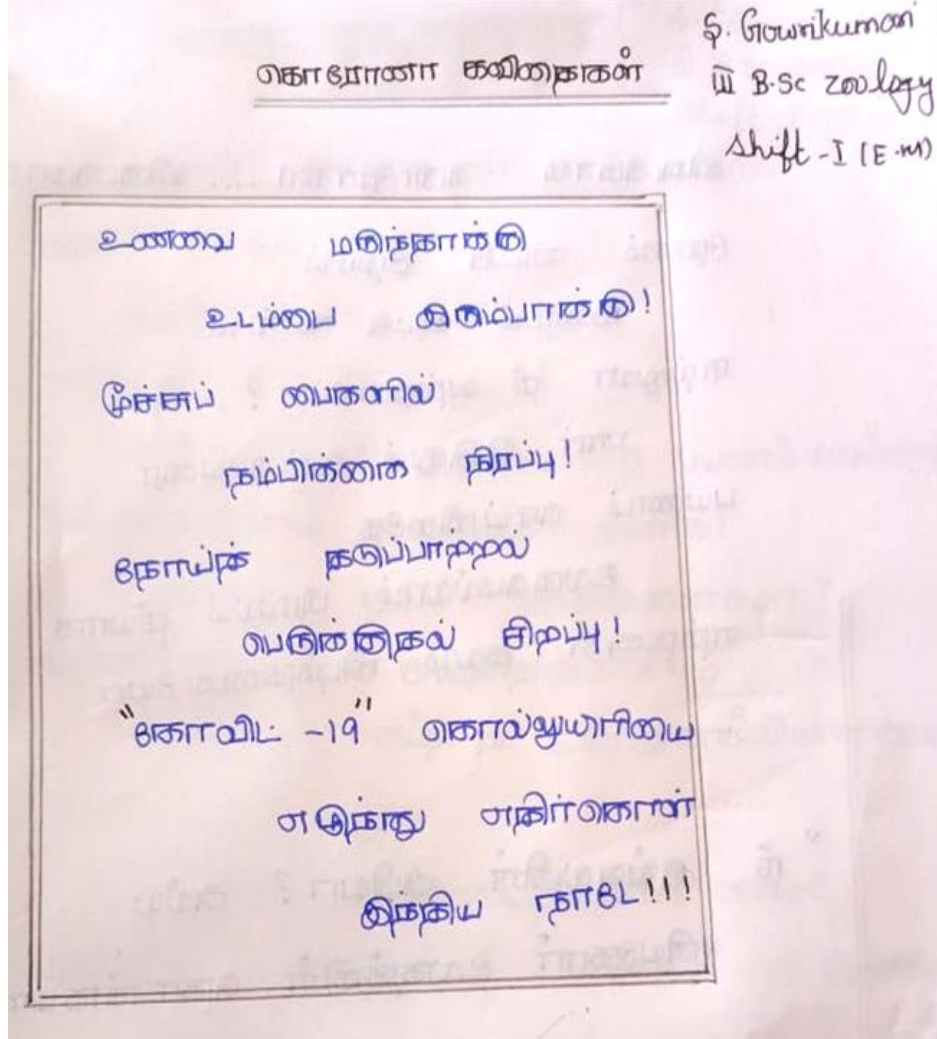 S. Gowrikumari
III B.Sc zoology
Shift - I (E.M)
கொரோனா கவிதைகள்
உணவை மருந்தாக்கு
உடம்பை இரும்பாக்கு!
மூச்சுப் பைகளில்
நம்பிக்கை நிரப்பு!
நோய்த் தடுப்பாற்றல்
பெருக்குதல் சிறப்பு!
"கோவிட் -19" கொல்லுயிரியை
எழுந்து எதிர்கொள்
இந்திய நாடே!!!